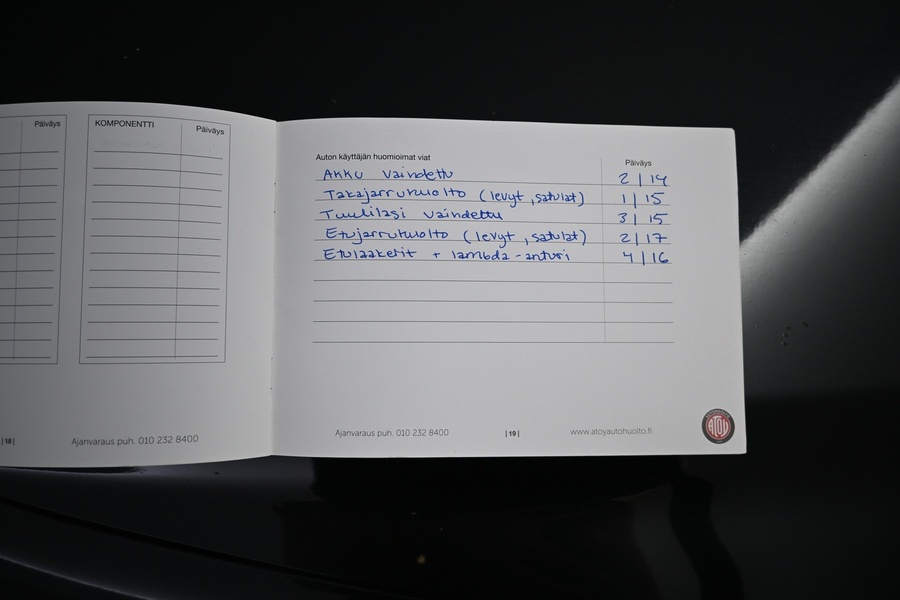 Päiväys
KOMPONENTTI Päiväys
Auton käyttäjän huomioimat viat Päiväys
Akku vaihdettu 2 | 14
Takajarruhuolto (levyt, satulat) 1 | 15
Tuulilasi vaihdettu 3 | 15
Etujarruhuolto (levyt, satulat) 2 | 17
Etulaakerit + lambda-anturi 4 | 16
| 18 | Ajanvaraus puh. 010 232 8400
Ajanvaraus puh. 010 232 8400 | 19 | www.atoyautohuolto.fi
ATOY